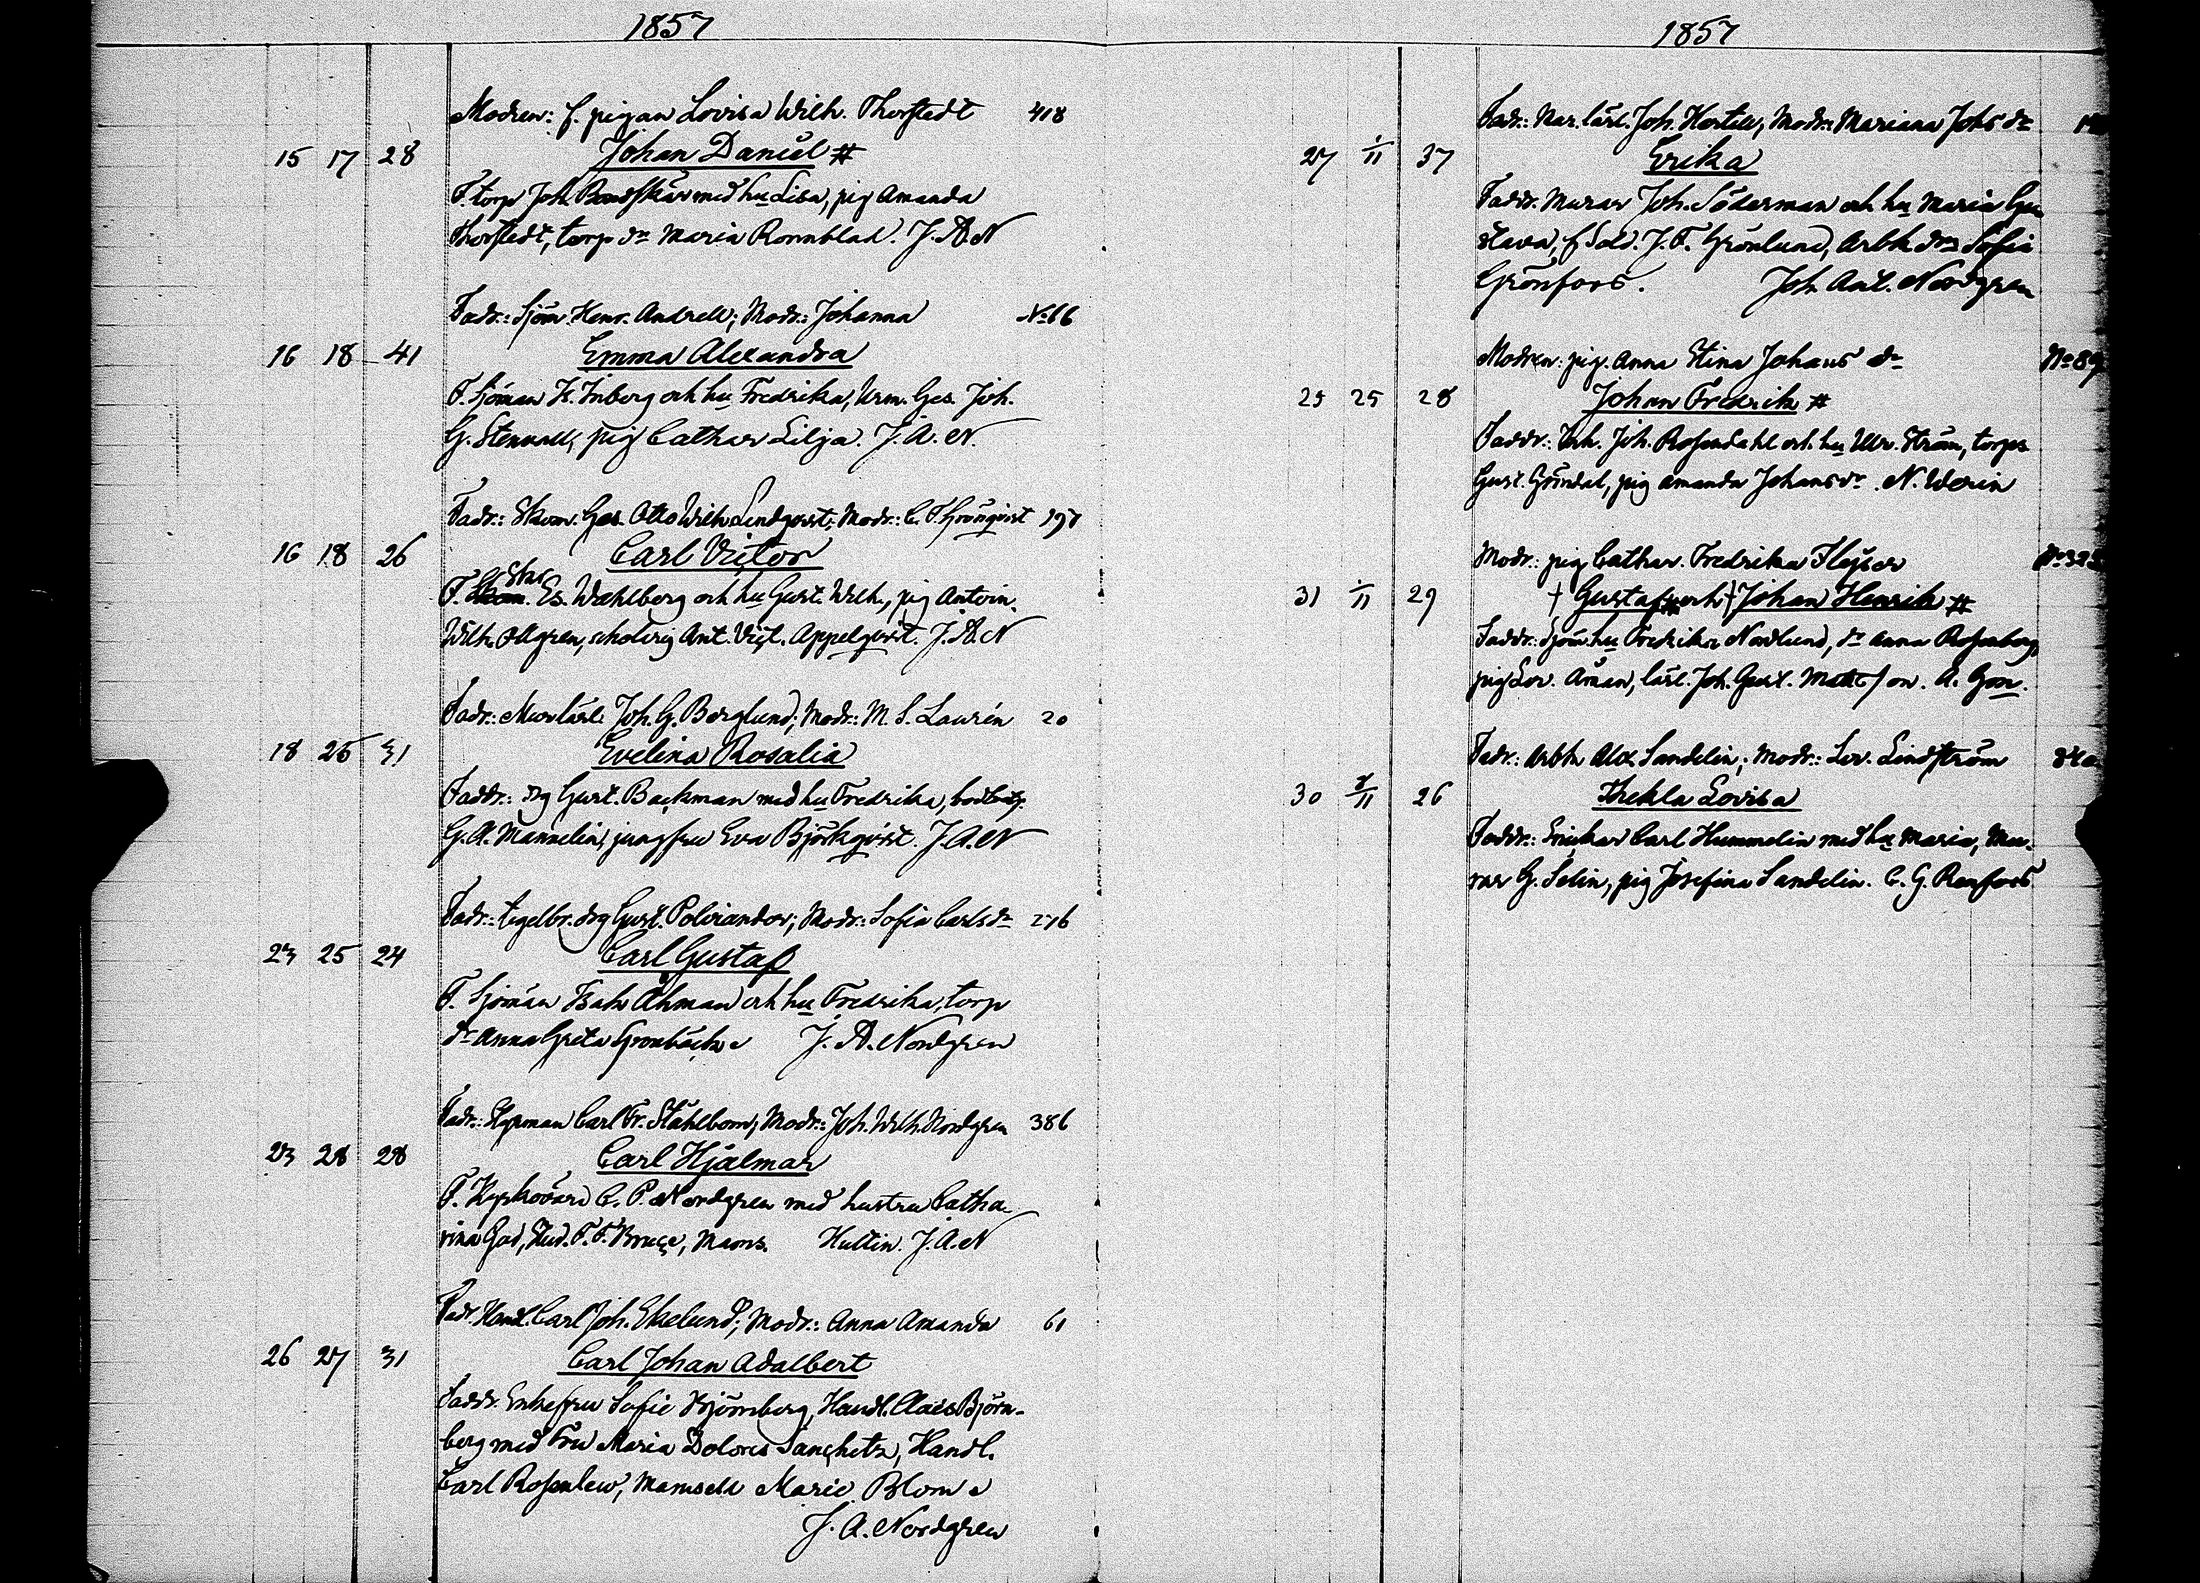 1857
Modren: f. pigan Lovisa Wilh. Thorstedt 418
15 17 28 Johan Daniel #
F. torp Joh. med hu Lisa, pig Amanda
Thorstedt, torp dr Maria Rönnblad. J. A. N
Fadr.: Sjöm. Henr. Andrell; Modr.: Johanna No 66
16 18 41 Emma Alexandra
F. Sjöman K. Inberg och hu Fredrika, Urm. Ges. Joh.
G. Stenvall, pig Cathar Lilja. J. A. N.
Fadr.: Skom. Ges. Otto Wilh Lindqvist; Modr.: C. F. Grönqvist 197
16 18 26 Carl Victor
F. Es. Wahlberg och hu Gust. Wilh., pig Antoin.
Wilh. Allgren, Ant. Vict. Appelqvist. J. A. N
Fadr.: Murlärl. Joh. G. Berglund; Modr.: M. S. Laurén 20
18 25 31 Evelina Rosalia
Faddr.: drg Gust. Backman med hu Fredrika,
G. A. Mannelin, jungfru Eva Björkqvist. J. A. N
Fadr.: tegelbr. drg Gust. Polviander; Modr.: Sofia Carlsdr 276
23 25 24 Carl Gustaf
F. Sjöman Isak Åhman och hu Fredrika, torp
dr Anna Greta Grönbäck. J. A. Nordgren
Fadr.: Styrman Carl Fr. Ståhlbom; Modr.: Joh. Wilh. Nordgren 386
23 28 28 Carl Hjalmar
F. Kyrkovärd C. P. Nordgren med hustru Catha-
rina Gad, Stud. F. F. Bruce, Mams. Hultin. J. A. N
Fadr. Handl. Carl Joh. Ekelund; Modr.: Anna Amanda 61
26 27 31 Carl Johan Adalbert
Faddr. Enkefru Sofie Björnberg, Handl. Claes Björn-
berg med Fru Maria Dolores Sanchetz, Handl.
Carl Rosenlew, Mamsell Marie Blom
J. A. Nordgren
1857
Fadr.: Mur. lärl. Joh. Hertell; Modr.: Mariana Johs dr
27 1/11 37 Erika
Faddr. Murar Joh. Söderman och hu Maria Gu
stava, f. Sold. J. F. Grönlund, Arbk. drs Sofia
Grönfors. Joh. Ant. Nordgren
Modren: pig. Anna Stina Johans dr No 89
25 25 28 Johan Fredrik #
Faddr.: Inh. Joh. Rosendahl och hu Ulr. Ström, torps
Gust. Gröndal, pig Amanda Johansdr. N. Idorin
Modr.: pig Cathar. Fredrika Flejser
31 1/11 29 † Gustaf # och † Johan Henrik #
Faddr.: Sjöm. hu Fredrika Nordlund, dr Anna Rosenberg,
pig Lov. Åman, lärl. Joh. Gust. Mattsson. A. Gon.
Fadr.: Arbk Alex Sandelin; Modr.: Lov. Lindström 340
30 8/11 26 Thekla Lovisa
Faddr.: Snickar Carl Hummelin med hu Maria, Mu-
rar G. Selin, pig Josefina Sandelin. C. G. Renfors